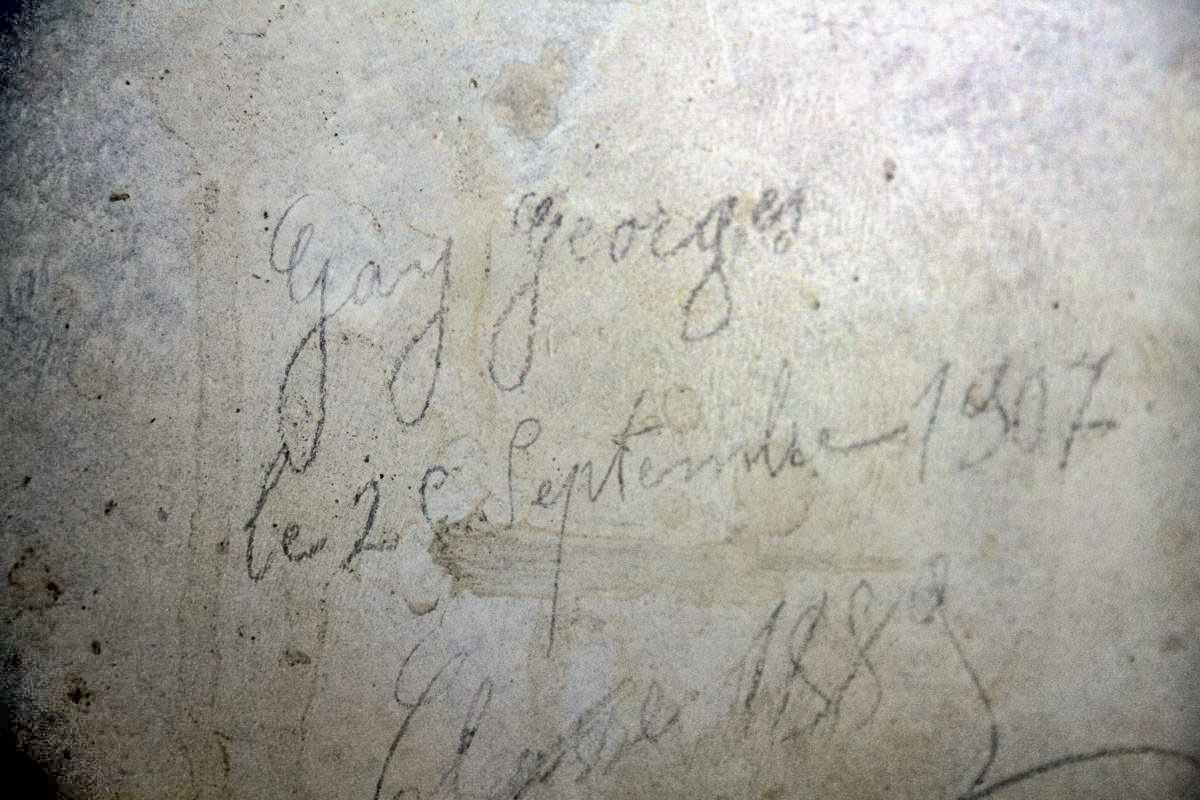 Gay georges
le 28 Septembre 1907
Classe 188